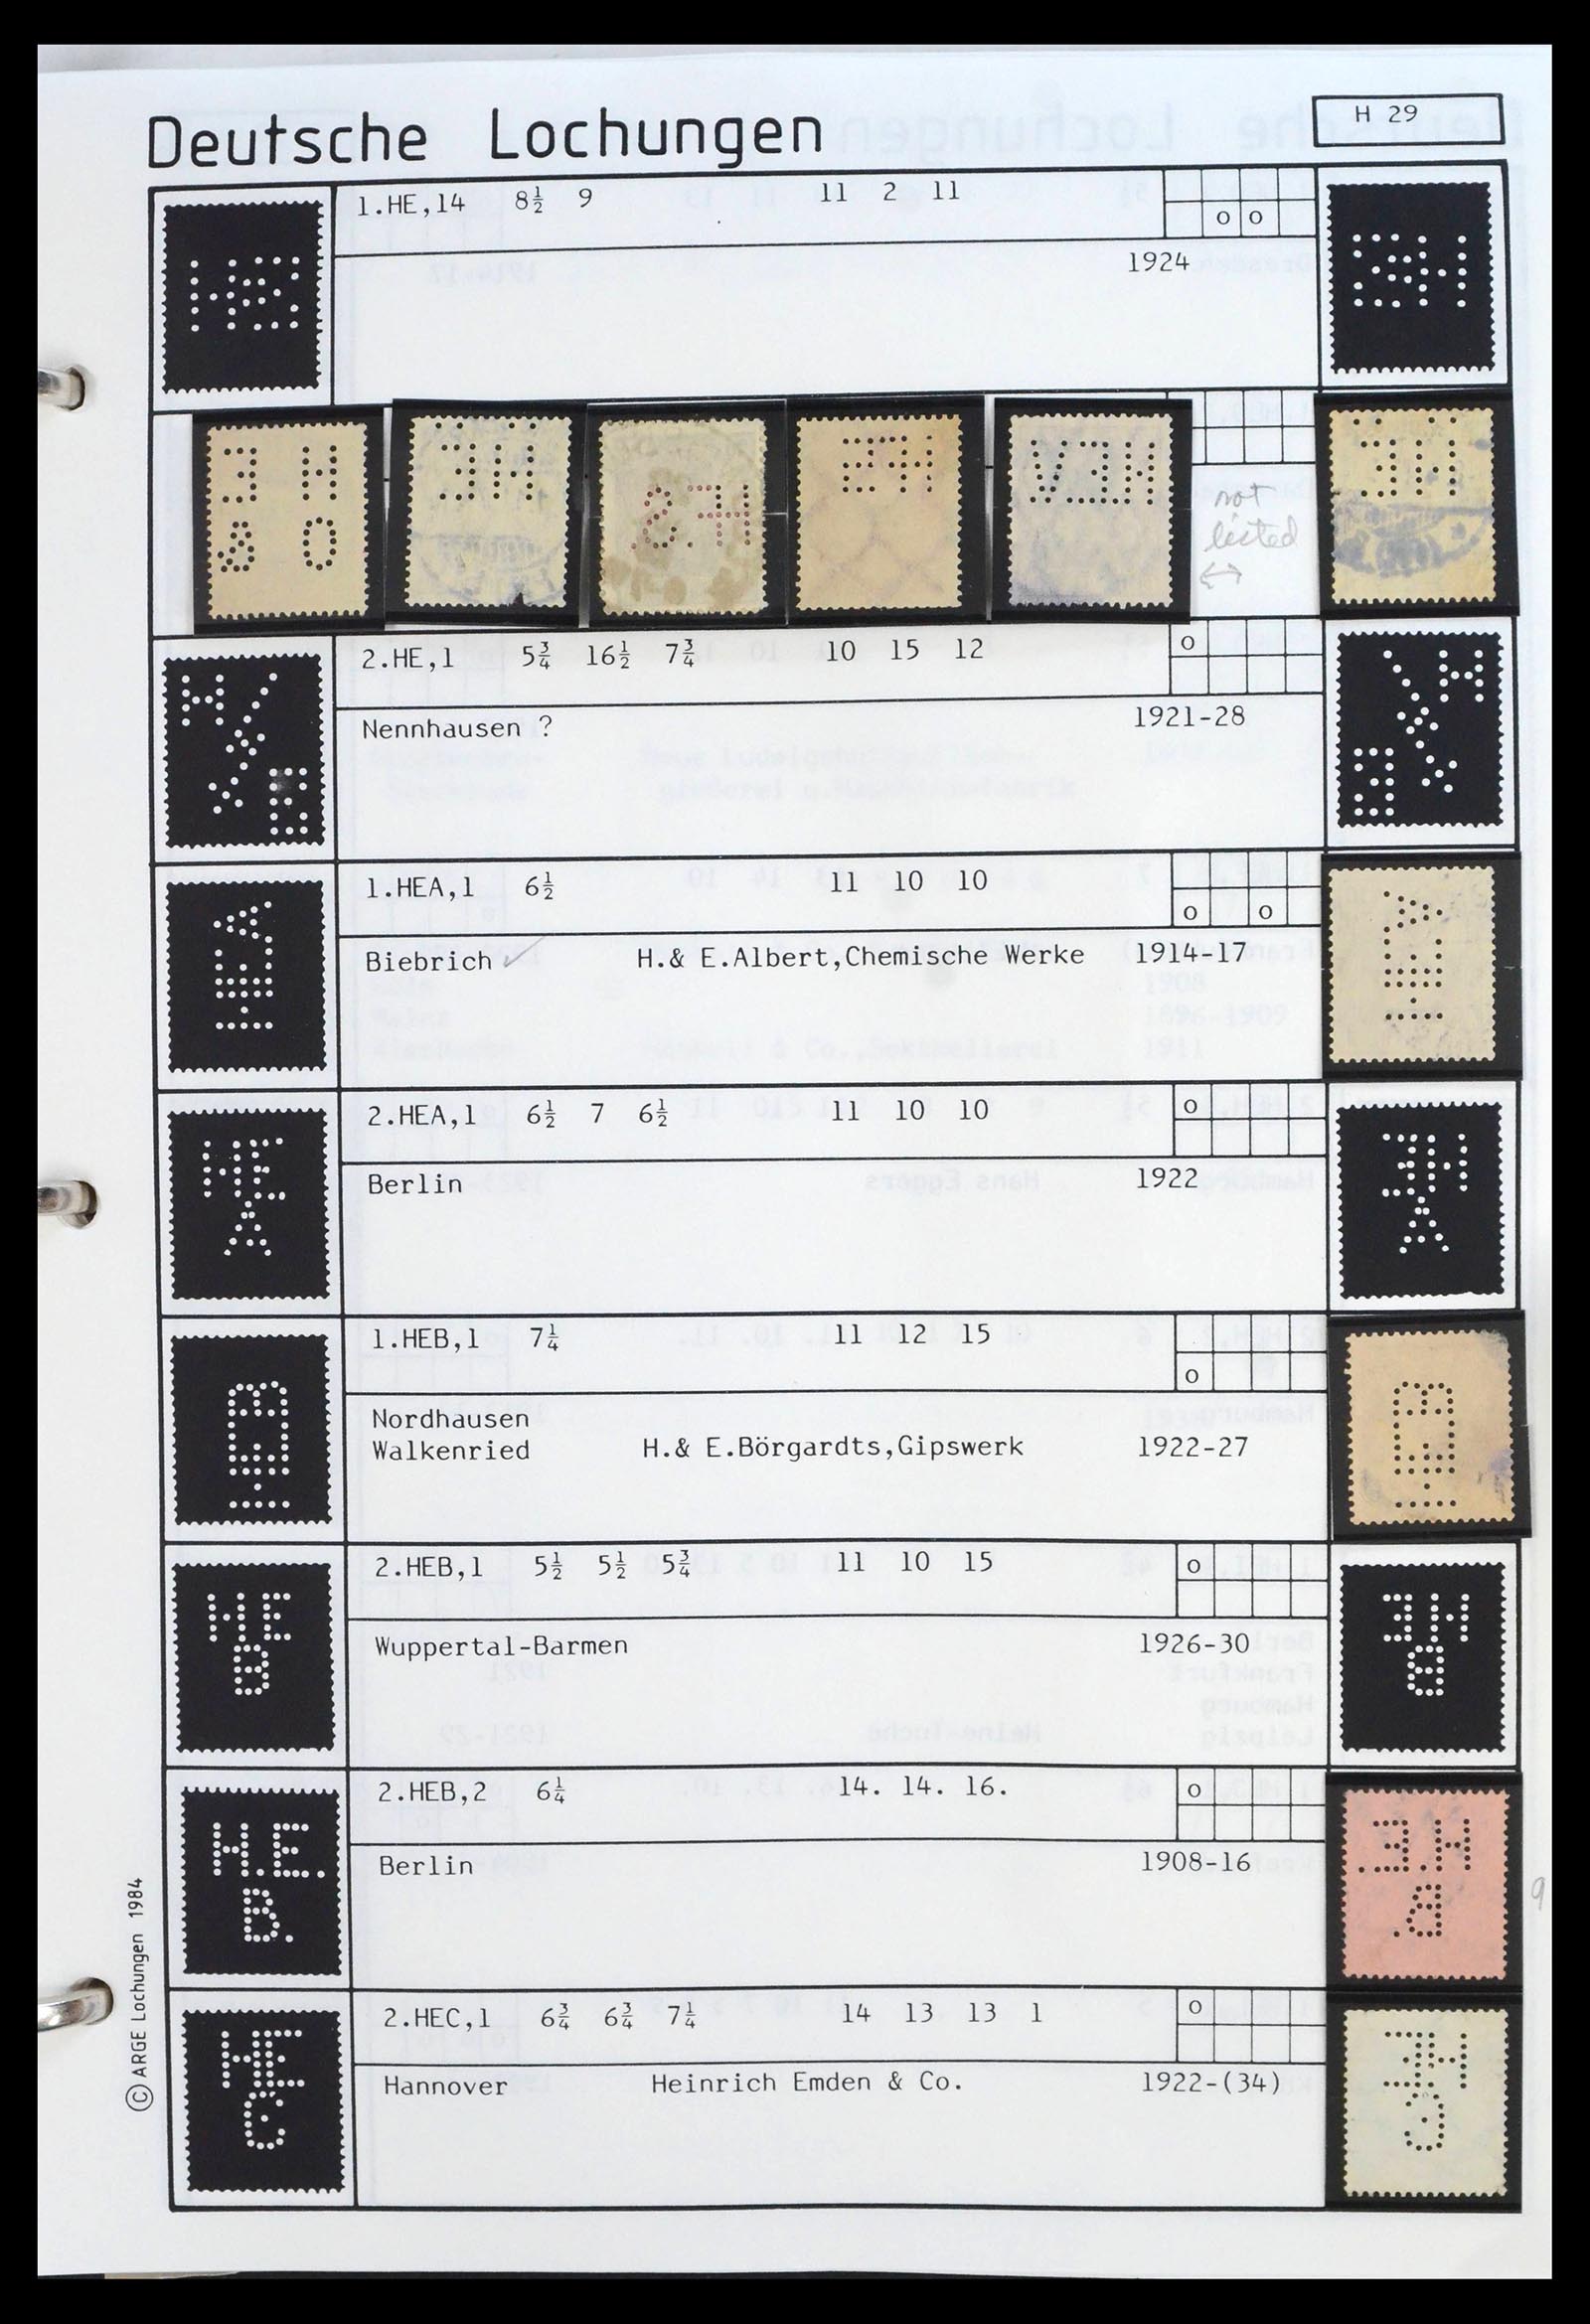 Deutsche Lochungen
H 29
1.HE,14 8½ 9 11 2 11
o o
1924
not
listed
2.HE,1 5¾ 16½ 7¾ 10 15 12
o
Nennhausen ? 1921-28
1.HEA,1 6½ 11 10 10
o o
Biebrich H.& E.Albert,Chemische Werke 1914-17
2.HEA,1 6½ 7 6½ 11 10 10
o
Berlin 1922
1.HEB,1 7¼ 11 12 15
o
Nordhausen
Walkenried H.& E.Börgardts,Gipswerk 1922-27
2.HEB,1 5½ 5½ 5¾ 11 10 15
o
Wuppertal-Barmen 1926-30
2.HEB,2 6¼ 14. 14. 16.
o
Berlin 1908-16
9
2.HEC,1 6¾ 6¾ 7¼ 14 13 13 1
o
Hannover Heinrich Emden & Co. 1922-(34)
© ARGE Lochungen 1984